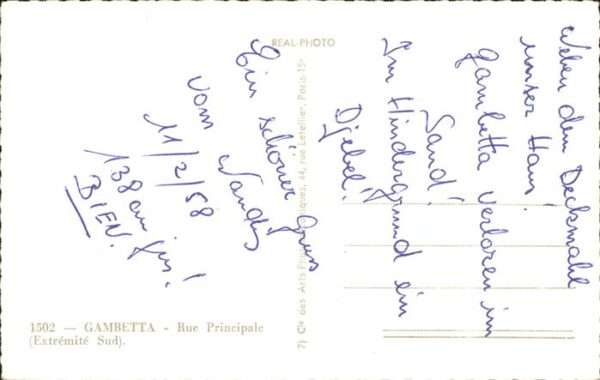 REAL-PHOTO
Neben dem Deckmahl
unser Haus!
Gambetta verloren im
Sand!
Im Hindergrund ein
Djebel!
Ein schöner Gruss
vom
11/2/58
138 au jus!
BIEN.
1502 — GAMBETTA - Rue Principale
(Extrémité Sud).
Cie des Arts 44, rue Letellier, Paris-15e